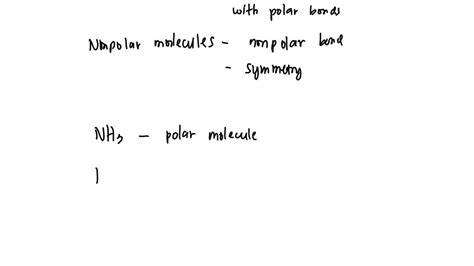 with polar bonds
Nonpolar molecules - nonpolar bond
- symmetry
NH3 - polar molecule